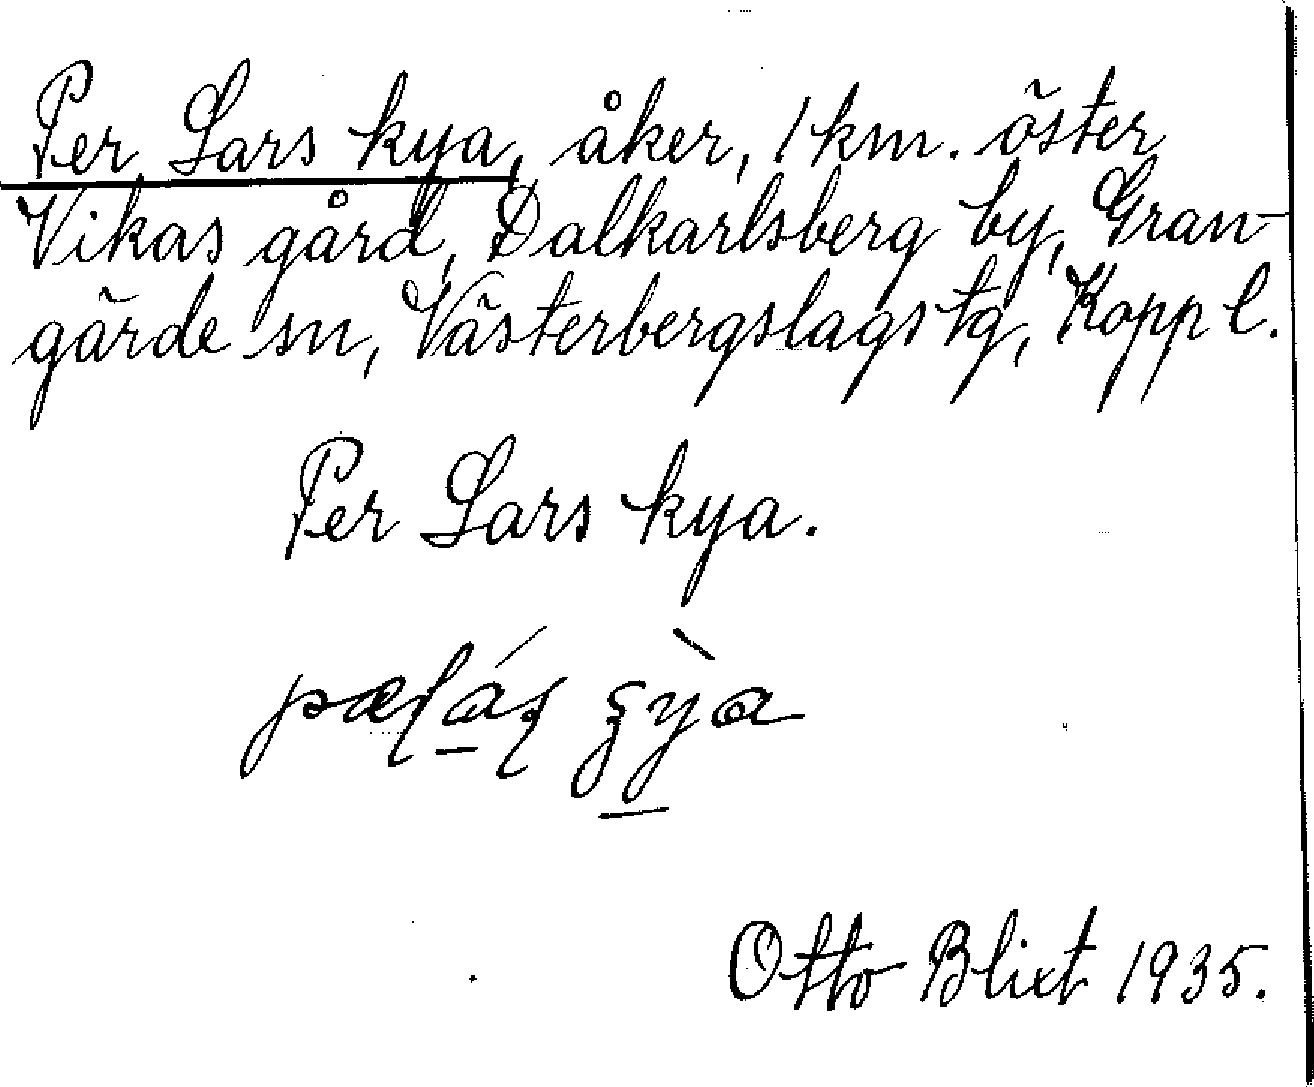 Per Lars kya, åker, 1 km. öster
Vikas gård, Dalkarlsberg by, Gran-
gärde sn, Västerbergslags tg, Kopp l.
Per Lars kya.
Otto Blixt 1935.